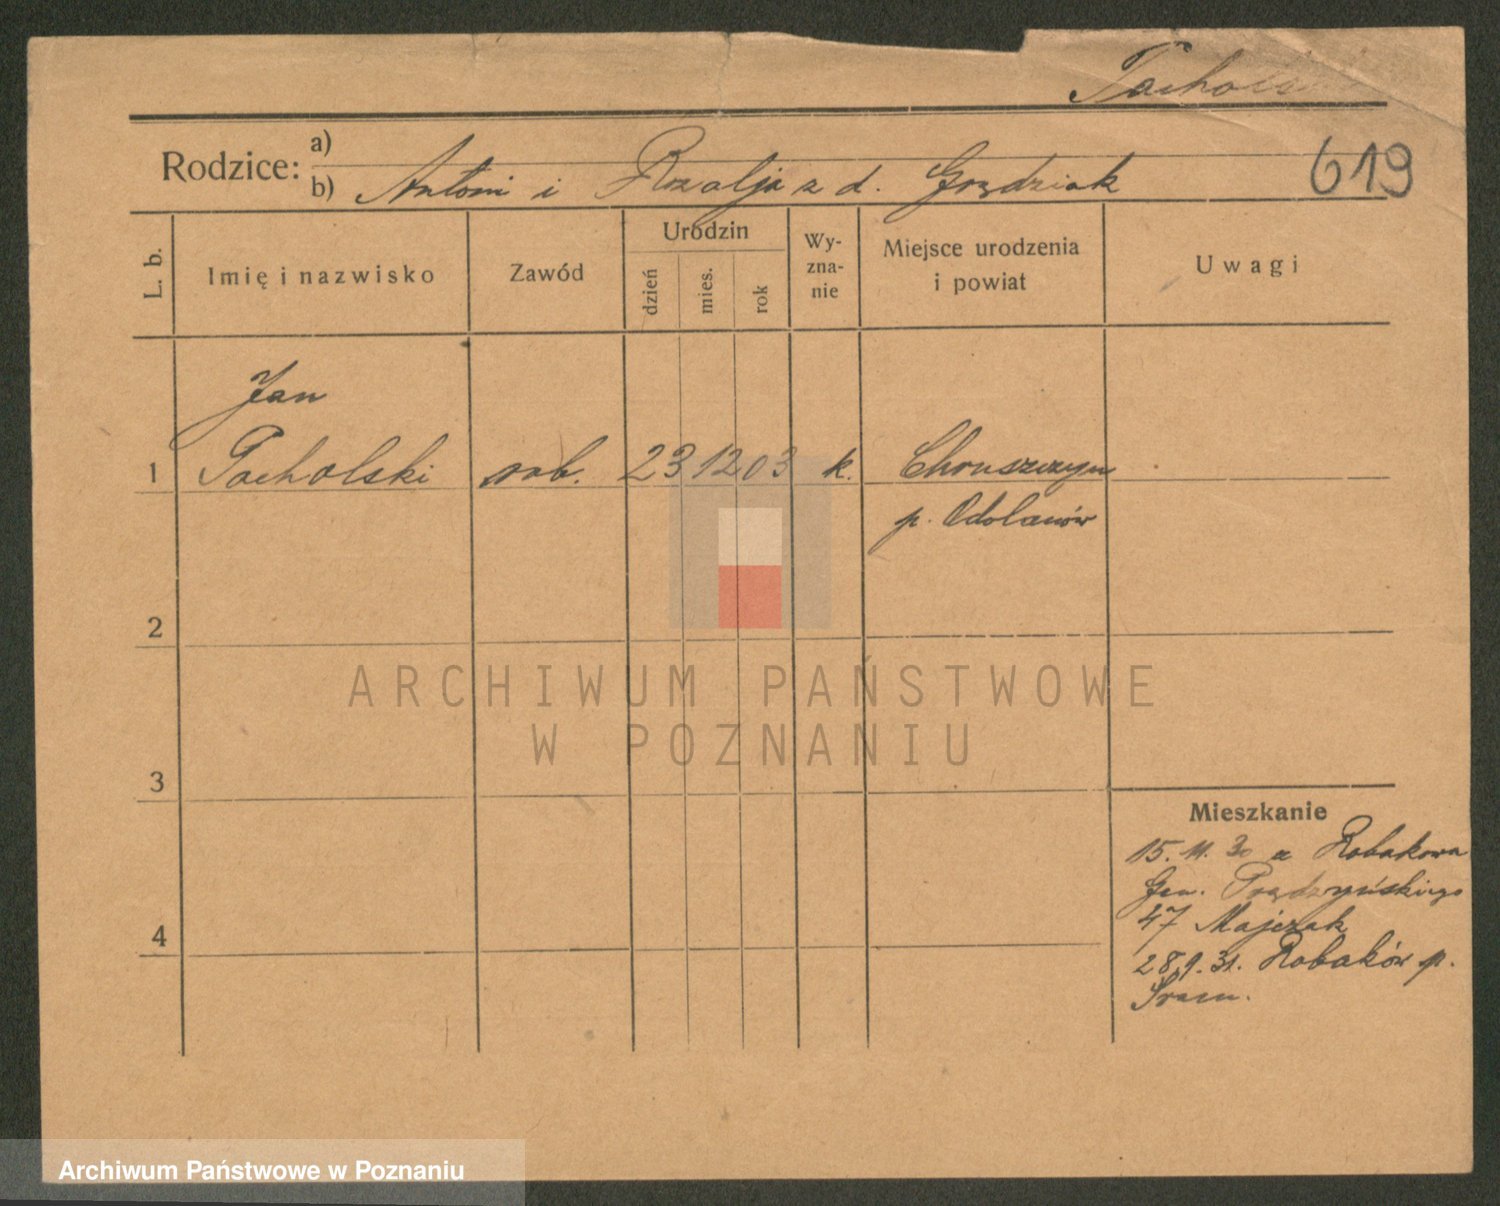 Pachols
Rodzice: a)
b) Antoni i Rozalja z d. Gozdziak
619
L. b.
Imię i nazwisko
Zawód
Urodzin
dzień
mies.
rok
Wy-
zna-
nie
Miejsce urodzenia
i powiat
Uwagi
Jan
1 Pacholski rob. 23 12 03 k. Chruszczyny
p. Odolanów
2
3
4
Mieszkanie
15. 11. 30 z Robakowa
Gen. Prądzyńskiego
47 Majczak
28.9.31. Robaków p.
Śrem.
ARCHIWUM PAŃSTWOWE
W POZNANIU
Archiwum Państwowe w Poznaniu